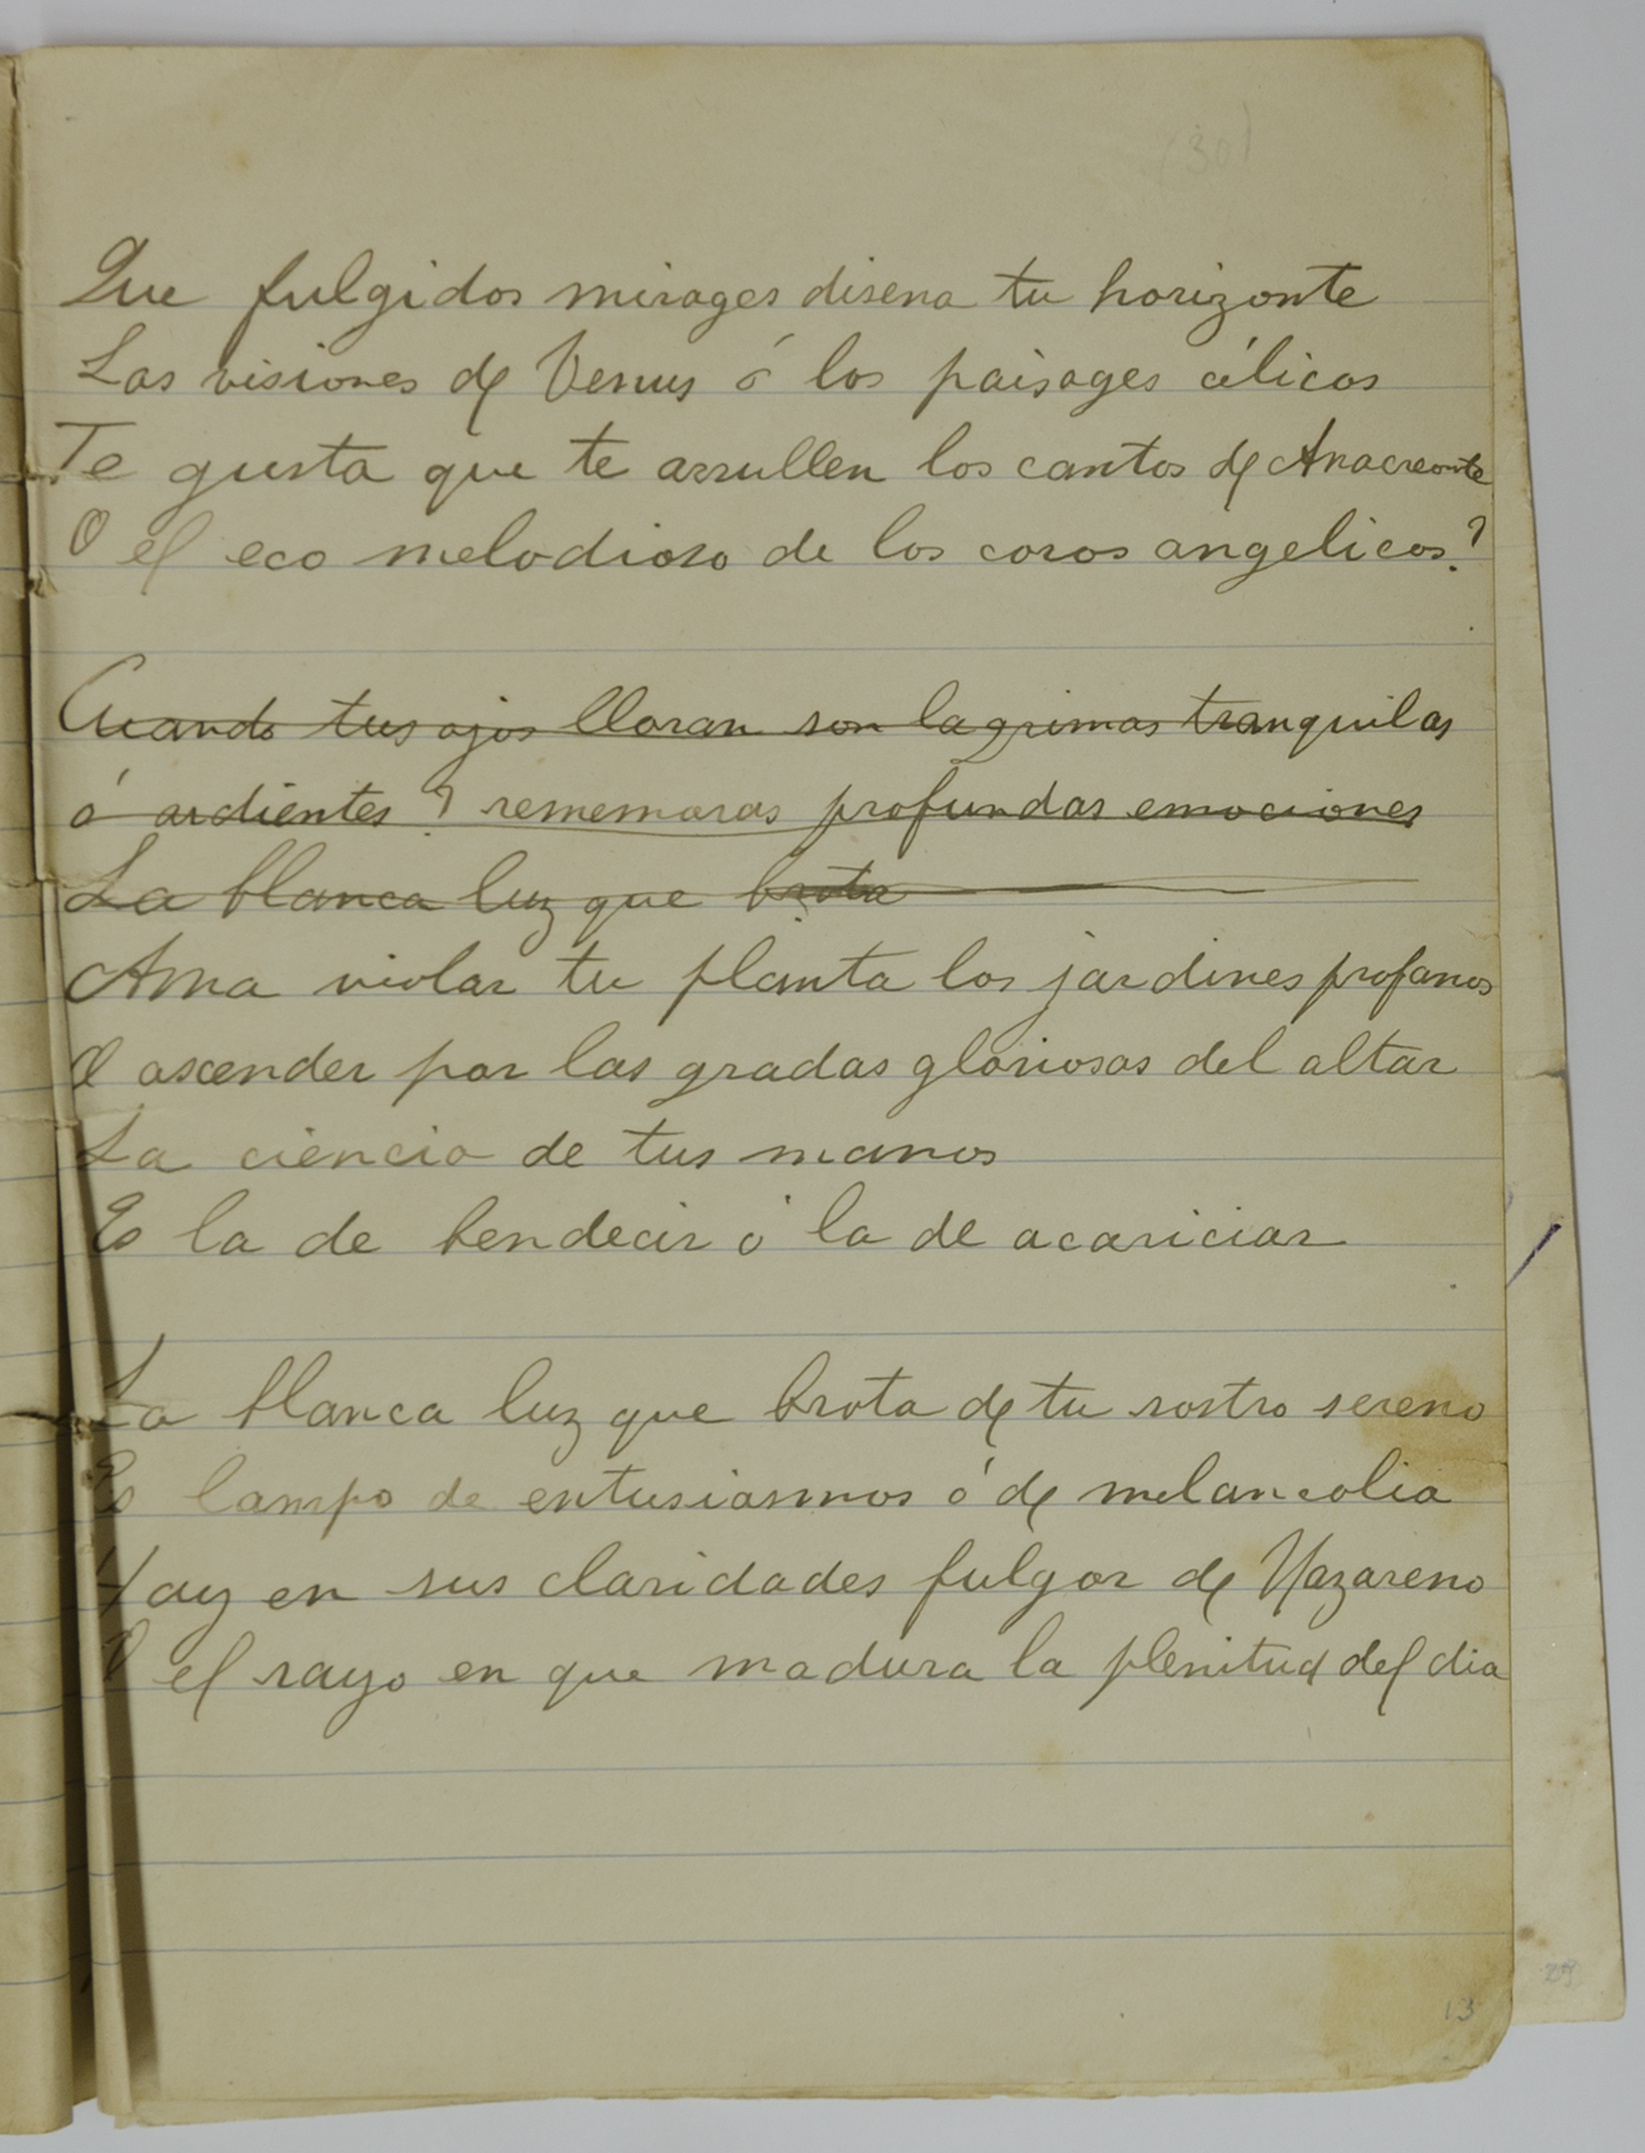 (30)
Que fulgidos mirages disena tu horizonte
Las visiones de Venus ó los paisages célicos
Te gusta que te arrullen los cantos de Anacreonte
O el eco melodioso de los coros angelicos?
Cuando tus ojos lloran son lagrimas tranquilas
ó ardientes? rememoras profundas emociones
La blanca luz que brota
Ama violar tu planta los jardines profanos
O ascender por las gradas gloriosas del altar
La ciencia de tus manos
Es la de bendecir ó la de acariciar
La blanca luz que brota de tu rostro sereno
Es lampo de entusiasmos ó de melancolia
Hay en sus claridades fulgor de Nazareno
O el rayo en que madura la plenitud del dia
29
13